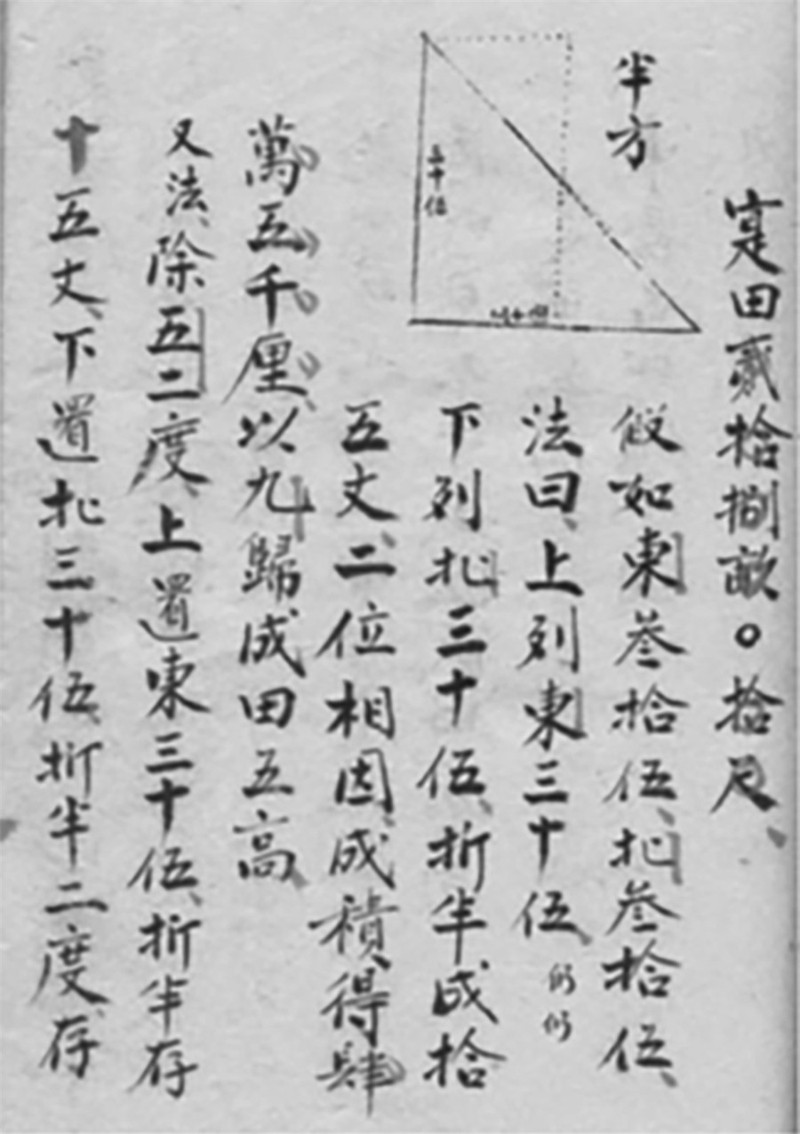 寔田貳拾捌畝〇拾尺
半方
三十伍
假如東叄拾伍北叄拾伍
法曰上列東三十伍
下列北三十伍折半成拾
五丈二位相因成積得肆
萬五千厘以九歸成田五高
又法除五二度上置東三十伍折半存
十五丈下置北三十伍折半二度存